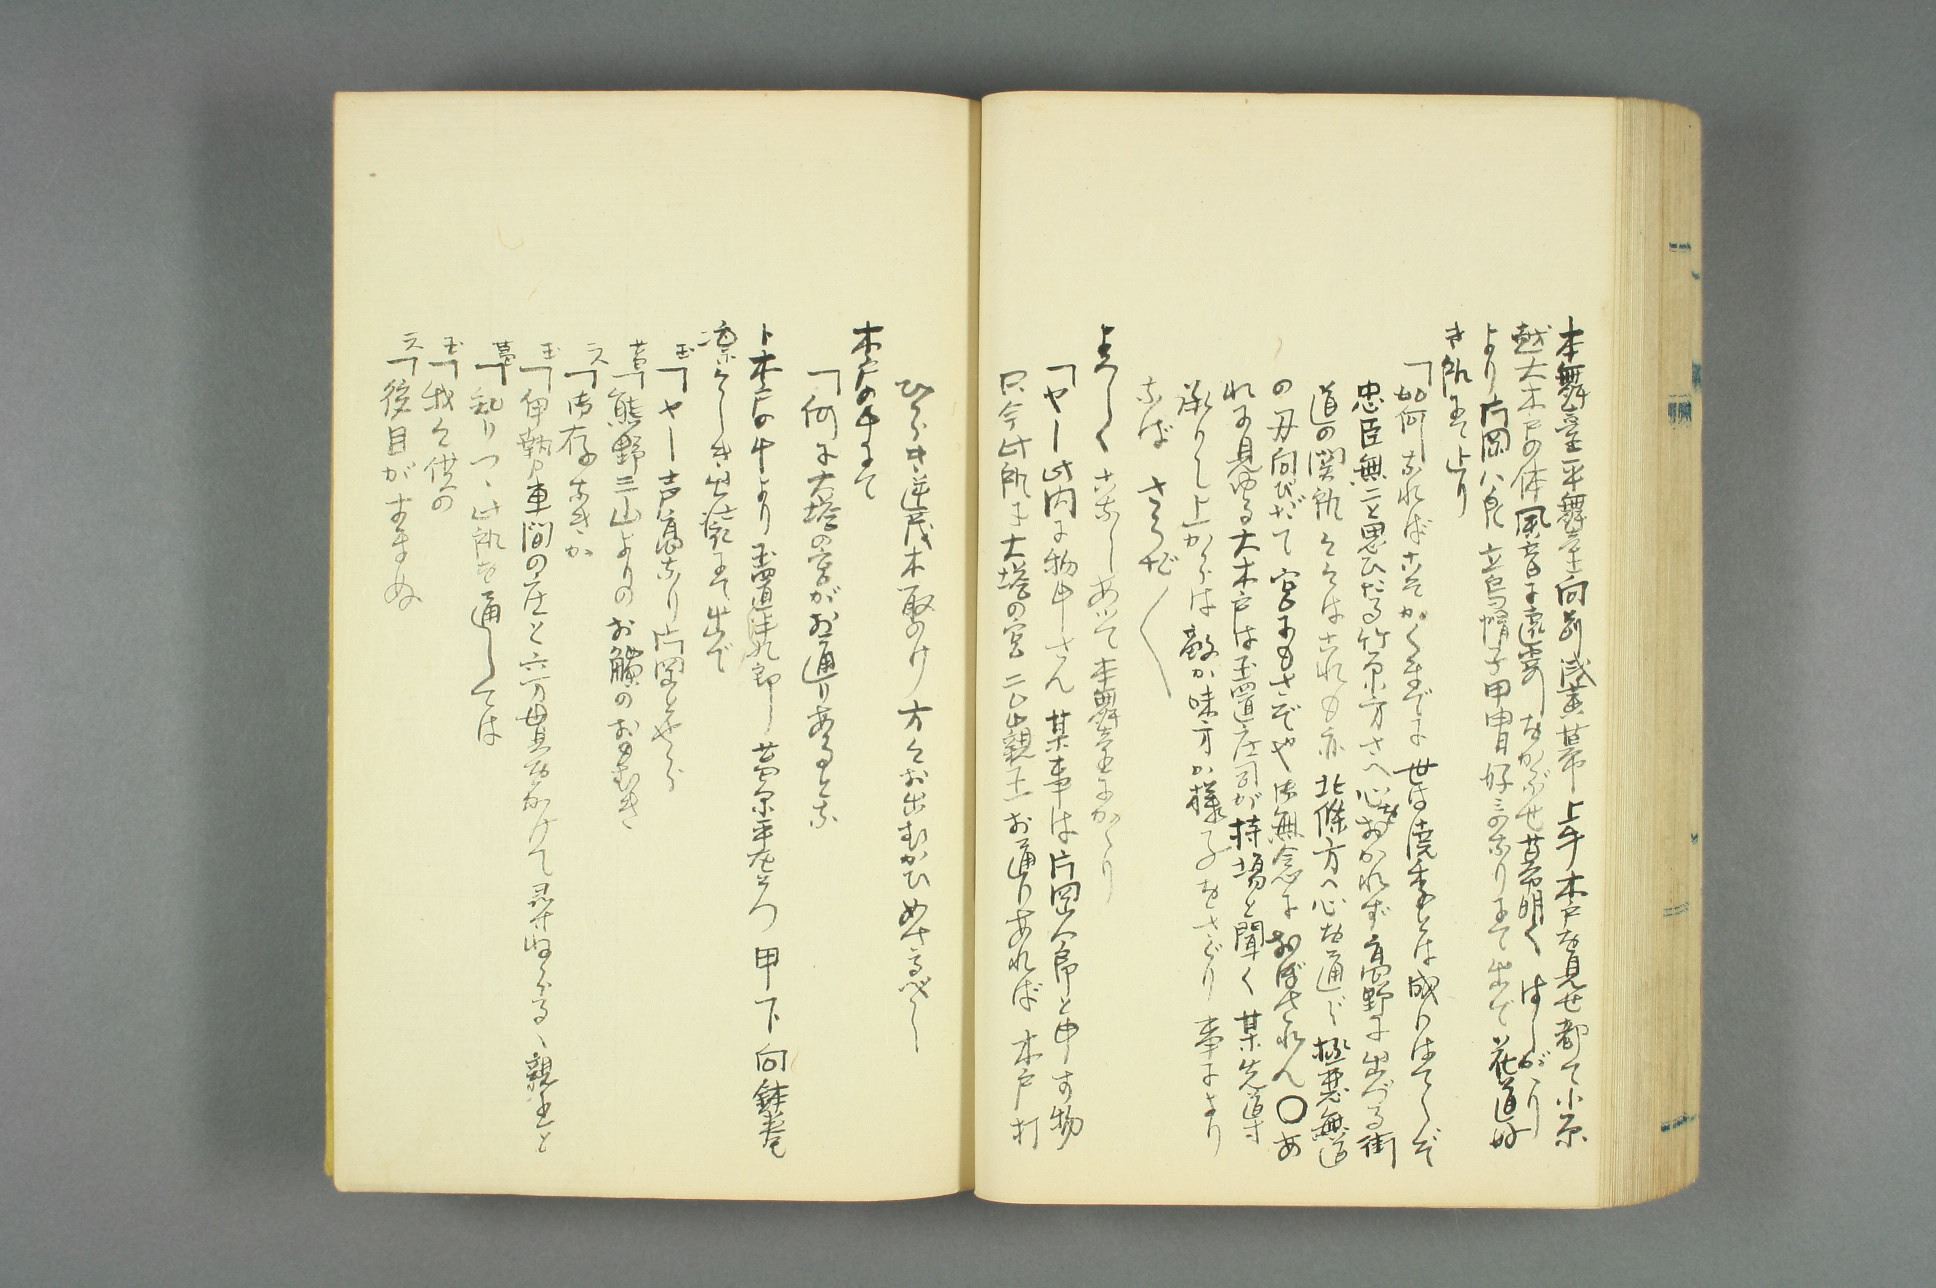 本舞台平舞台向前浅黄幕上手木戸を見せ都て小原
越大木戸の体風音に遠寄なかぶせ幕明く はしがゝり
より片岡八郎 立烏帽子甲冑好みのなりにて出で 花道好
き所にて止り
「如何なればこそかくまでに 世は澆季とは成りはてしぞ
忠臣無二と思ひたる竹原方さへ心おかれず 高野に出づる街
道の関所々々はこれも亦 北條方へ心を通じ 極悪無道
の刃向ひだて 宮にもさぞや御無念におぼされん〇あ
れに見ゆる大木戸は玉置庄司が持場と聞く 某先達
承りし上からは 敵か味方か様子をさぐり 事により
なば さうぢや
よろしくこなしあつて本舞台にかゝり
「ヤー此内に物申さん 某事は片岡八郎と申す物
只今此所に大塔の宮二品親王お通りあれば 木戸打
ひらき 逆茂木取のけ 方々お出むかひめさるべし
木戸の中にて
「何に大塔の宮がお通りあるとな
ト木戸の中より玉置 郎 芋原平 甲下向鉢巻
凛々しき出達にて出で
玉「ヤー声高なり片岡とやら
芋「熊野三山よりのお觸のおもむき
三「御存なきか
玉「伊勢車間の庄と六万貫をかけて尋ねらるゝ親王と
芋「知りつゝ此所を通しては
玉「我々供の
三「役目がすまぬ